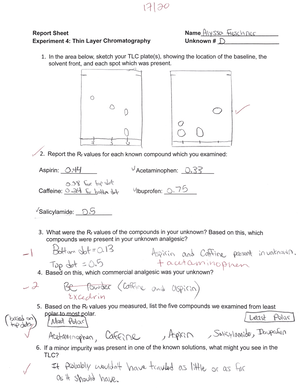 17/20
Report Sheet
Name Alyssa
Experiment 4: Thin Layer Chromatography
Unknown # D
1. In the area below, sketch your TLC plate(s), showing the location of the baseline, the
solvent front, and each spot which was present.
2. Report the Rf values for each known compound which you examined:
Aspirin: 0.44
Acetaminophen: 0.33
0.38 for top dot
Caffeine: for bottom dot
Ibuprofen: 0.75
Salicylamide: 0.5
3. What were the Rf values of the compounds in your unknown? Based on this, which
compounds were present in your unknown analgesic?
-1 Bottom dot = 0.13
Aspirin and Caffeine present in unknown.
Top dot = 0.5
+ acetaminophen
4. Based on this, which commercial analgesic was your unknown?
-2 BC Powder (Caffeine and Aspirin)
Excedrin
5. Based on the Rf values you measured, list the five compounds we examined from least
polar to most polar.
(based on top dots)
Most Polar
Least Polar
Acetaminophen, Caffeine, Aspirin, Salicylamide, Ibuprofen
6. If a minor impurity was present in one of the known solutions, what might you see in the
TLC?
It probably wouldn't have traveled as little or as far
as it should have.